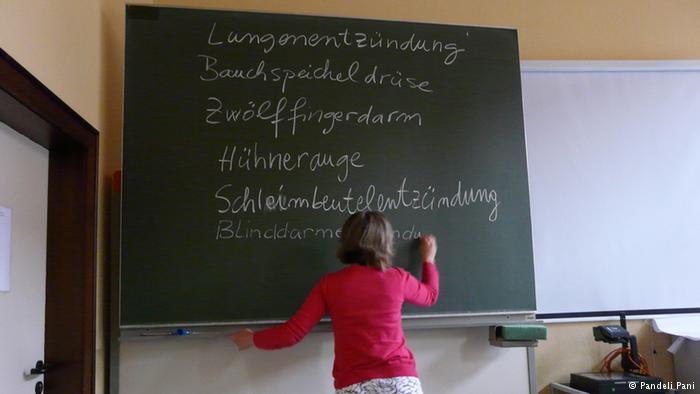 Lungenentzündung
Bauchspeicheldrüse
Zwölffingerdarm
Hühnerauge
Schleimbeutelentzündung
© Pandeli Pani